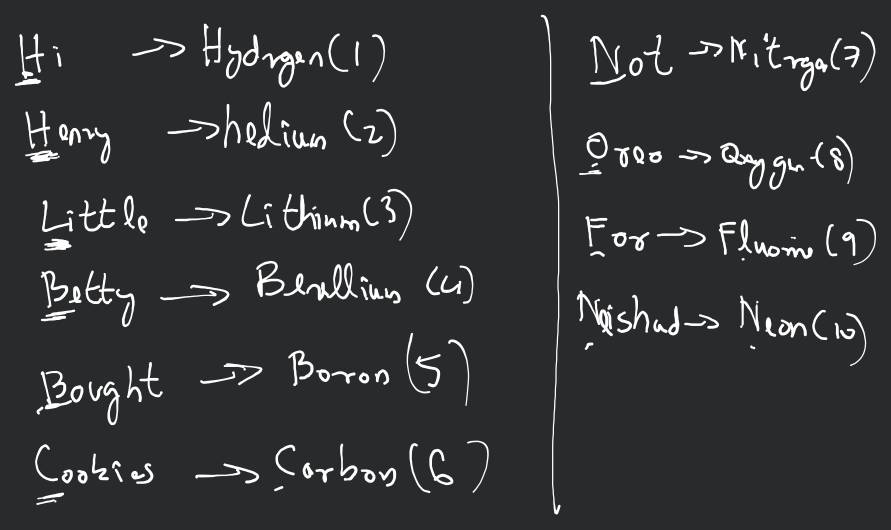 Hi → Hydrgen(1)
Henry → hedium (2)
Little → Lithium(3)
Betty → Berallium (4)
Bought → Boron (5)
Cookies → Carbon (6)
Not → Nitrgn(7)
Oreo → Oxygen (8)
For → Fluorine (9)
Naishad → Neon(10)